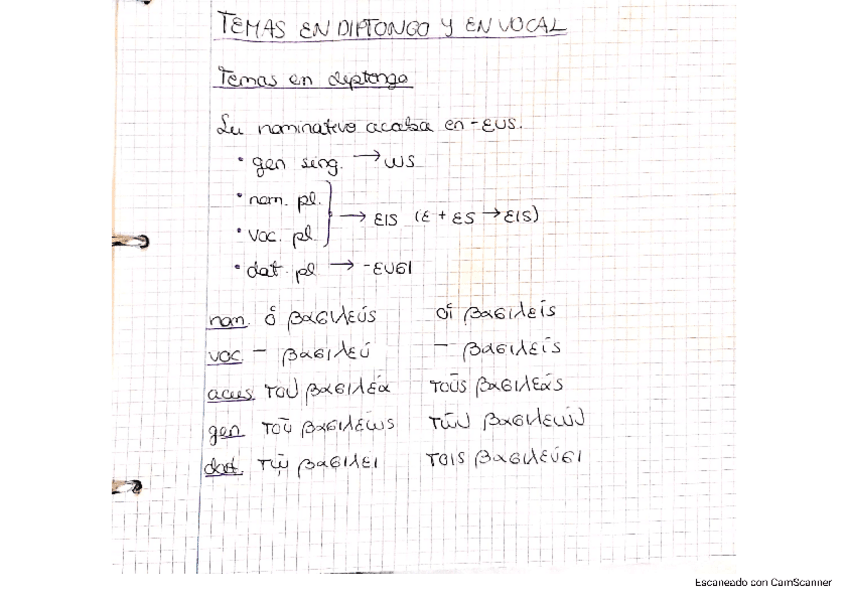 TEMAS EN DIPTONGO Y EN VOCAL
Temas en diptongo
Su nominativo acaba en -ευς.
• gen sing. → ως
• nom. pl.
• voc. pl. → εις (ε + ες → εις)
• dat. pl → -ευσι
nom. ὁ βασιλεύς οἱ βασιλείς
voc. — βασιλεύ — βασιλείς
acus τον βασιλεά τοῦς βασιλεάς
gen τοῦ βασιλεώς τῶν βασιλεών
dat. τῷ βασιλει τοις βασιλεύσι
Escaneado con CamScanner